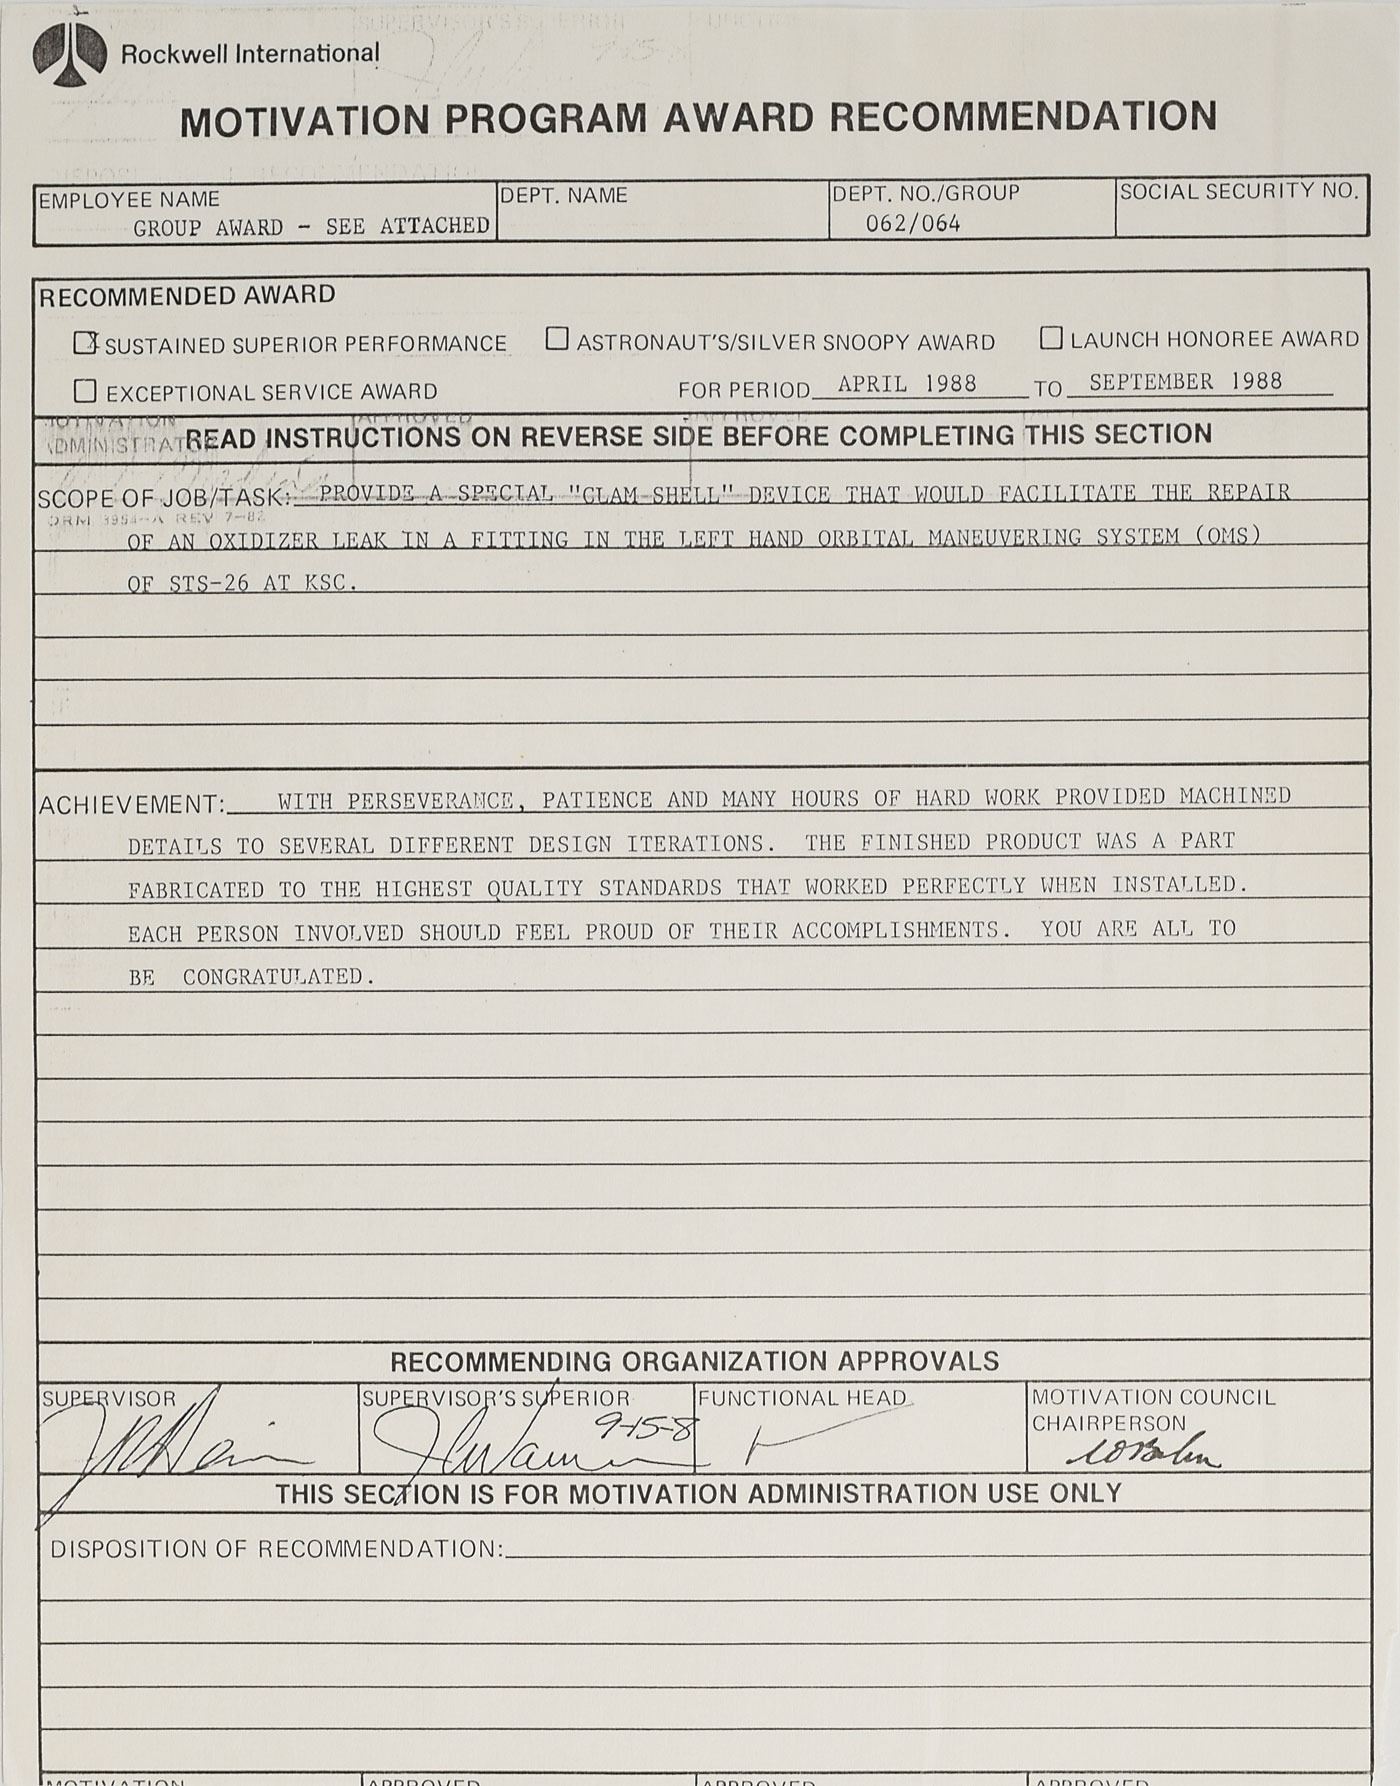 Rockwell International
MOTIVATION PROGRAM AWARD RECOMMENDATION
EMPLOYEE NAME DEPT. NAME DEPT. NO./GROUP SOCIAL SECURITY NO.
GROUP AWARD - SEE ATTACHED 062/064
RECOMMENDED AWARD
X SUSTAINED SUPERIOR PERFORMANCE ASTRONAUT'S/SILVER SNOOPY AWARD LAUNCH HONOREE AWARD
EXCEPTIONAL SERVICE AWARD FOR PERIOD APRIL 1988 TO SEPTEMBER 1988
READ INSTRUCTIONS ON REVERSE SIDE BEFORE COMPLETING THIS SECTION
SCOPE OF JOB/TASK: PROVIDE A SPECIAL "CLAM SHELL" DEVICE THAT WOULD FACILITATE THE REPAIR
OF AN OXIDIZER LEAK IN A FITTING IN THE LEFT HAND ORBITAL MANEUVERING SYSTEM (OMS)
OF STS-26 AT KSC.
ACHIEVEMENT: WITH PERSEVERANCE, PATIENCE AND MANY HOURS OF HARD WORK PROVIDED MACHINED
DETAILS TO SEVERAL DIFFERENT DESIGN ITERATIONS. THE FINISHED PRODUCT WAS A PART
FABRICATED TO THE HIGHEST QUALITY STANDARDS THAT WORKED PERFECTLY WHEN INSTALLED.
EACH PERSON INVOLVED SHOULD FEEL PROUD OF THEIR ACCOMPLISHMENTS. YOU ARE ALL TO
BE CONGRATULATED.
RECOMMENDING ORGANIZATION APPROVALS
SUPERVISOR SUPERVISOR'S SUPERIOR FUNCTIONAL HEAD MOTIVATION COUNCIL
CHAIRPERSON
9-15-8
THIS SECTION IS FOR MOTIVATION ADMINISTRATION USE ONLY
DISPOSITION OF RECOMMENDATION:
MOTIVATION APPROVED APPROVED APPROVED